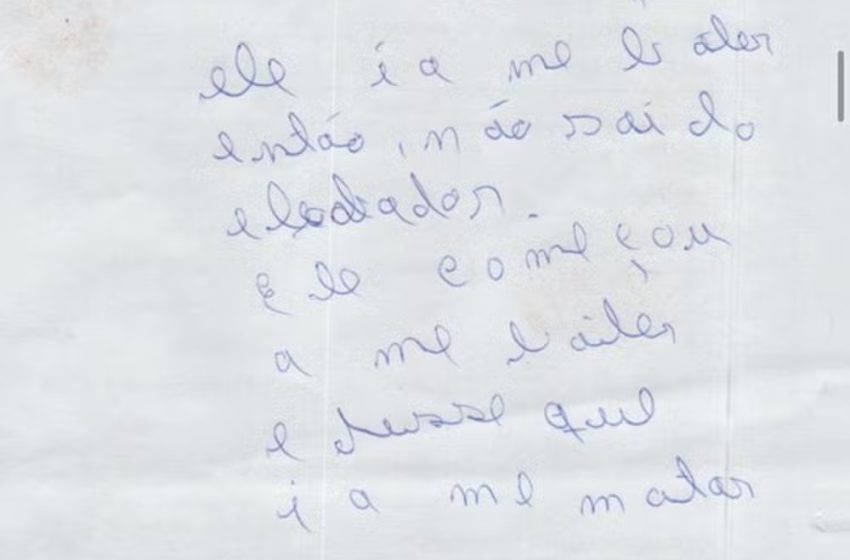 ele ia me bater
então, não sai do
elevador.
Ele começou
a me bater
e disse que
ia me matar